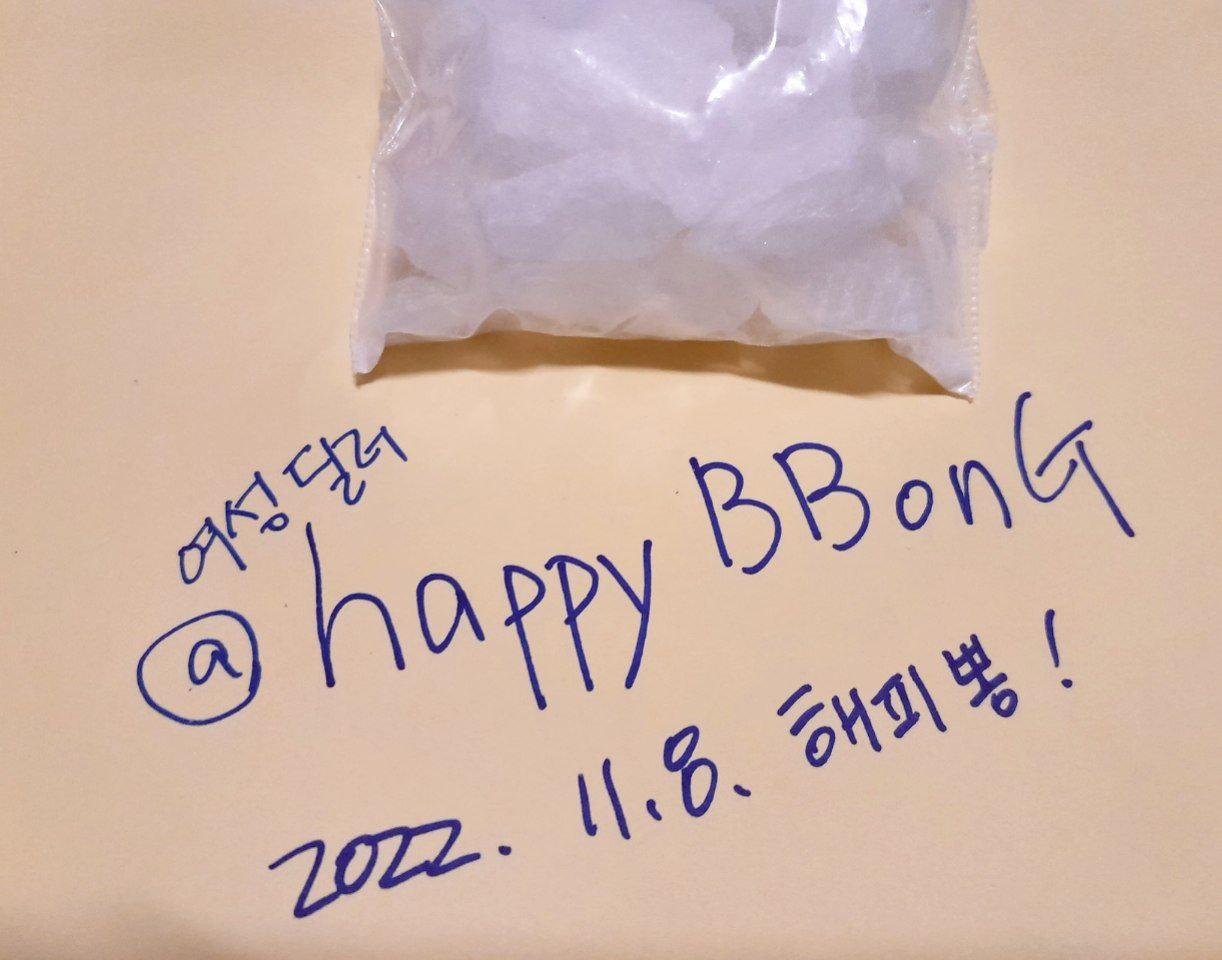 여성딜러
@happy BBonG
2022. 11.8. 해피뽕!